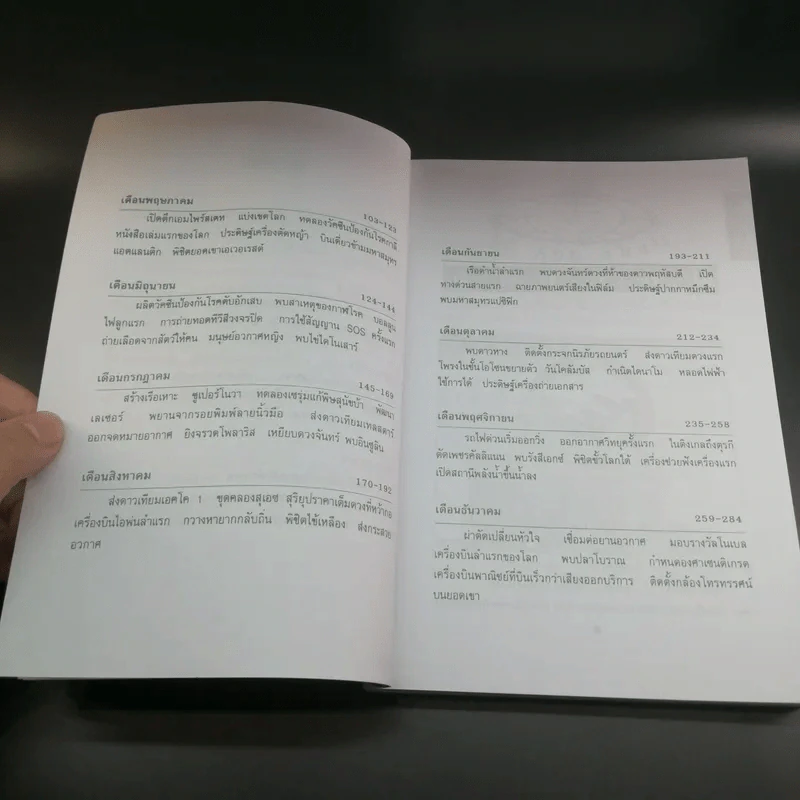 เดือนพฤษภาคม 103-123
เปิดตึกเอมไพร์สเตท แบ่งเขตโลก ทดลองวัคซีนป้องกันโรคกาลี
หนังสือเล่มแรกของโลก ประดิษฐ์เครื่องตัดหญ้า บินเดี่ยวข้ามมหาสมุทร
แอตแลนติก พิชิตยอดเขาเอเวอเรสต์
เดือนมิถุนายน 124-144
ผลิตวัคซีนป้องกันโรคตับอักเสบ พบสาเหตุของกาฬโรค บอลลูน
ไฟลูกแรก การถ่ายทอดทีวีสีวงจรปิด การใช้สัญญาณ SOS ครั้งแรก
ถ่ายเลือดจากสัตว์ให้คน มนุษย์อวกาศหญิง พบไข่ไดโนเสาร์
เดือนกรกฎาคม 145-169
สร้างเรือเหาะ ซูเปอร์โนวา ทดลองเซรุ่มแก้พิษสุนัขบ้า พัฒนา
เลเซอร์ พยานจากรอยพิมพ์ลายนิ้วมือ ส่งดาวเทียมเทลสตาร์
ออกจดหมายอากาศ ยิงจรวดโพลาริส เหยียบดวงจันทร์ พบอินซูลิน
เดือนสิงหาคม 170-192
ส่งดาวเทียมเอคโค 1 ขุดคลองสุเอซ สุริยุปราคาเต็มดวงที่หว้ากอ
เครื่องบินไอพ่นลำแรก กวางหายากกลับถิ่น พิชิตไข้เหลือง ส่งกระสวย
อวกาศ
เดือนกันยายน 193-211
เรือดำน้ำลำแรก พบดวงจันทร์ดวงที่ห้าของดาวพฤหัสบดี เปิด
ทางด่วนสายแรก ฉายภาพยนตร์เสียงในฟิล์ม ประดิษฐ์ปากกาหมึกซึม
พบมหาสมุทรแปซิฟิก
เดือนตุลาคม 212-234
พบดาวหาง ติดตั้งกระจกนิรภัยรถยนต์ ส่งดาวเทียมดวงแรก
โพรงในชั้นโอโซนขยายตัว วันโคลัมบัส กำเนิดไดนาโม หลอดไฟฟ้า
ใช้การได้ ประดิษฐ์เครื่องถ่ายเอกสาร
เดือนพฤศจิกายน 235-258
รถไฟด่วนเริ่มออกวิ่ง ออกอากาศวิทยุครั้งแรก ไนติงเกลถึงตุรกี
ตัดเพชรคัลลิแนน พบรังสีเอกซ์ พิชิตขั้วโลกใต้ เครื่องช่วยฟังเครื่องแรก
เปิดสถานีพลังน้ำขึ้นน้ำลง
เดือนธันวาคม 259-284
ผ่าตัดเปลี่ยนหัวใจ เชื่อมต่อยานอวกาศ มอบรางวัลโนเบล
เครื่องบินลำแรกของโลก พบปลาโบราณ กำหนดองศาเซนติเกรด
เครื่องบินพาณิชย์ที่บินเร็วกว่าเสียงออกบริการ ติดตั้งกล้องโทรทรรศน์
บนยอดเขา